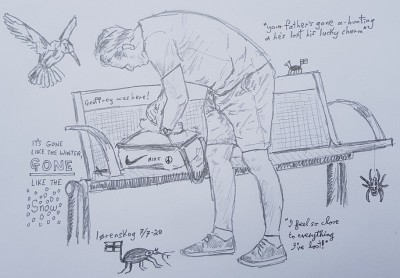 "your father's gone a-hunting
& he's lost his lucky charm"
Geoffrey was here!
IT'S GONE
LIKE THE WINTER,
GONE
LIKE THE
Snow
NIKE
lørenskog 7/7-20
"I feel so close
to everything
I've lost!"